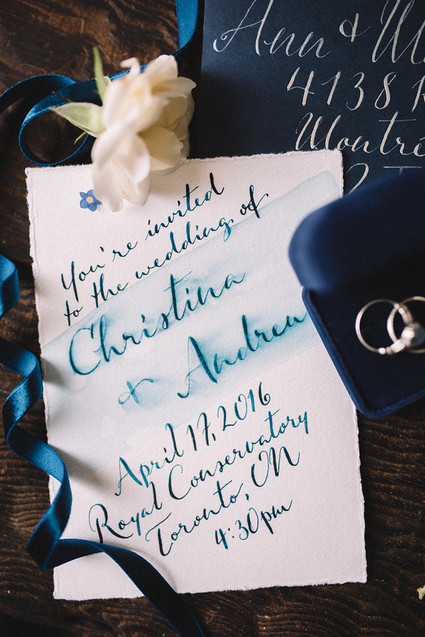 Ann &
4138
Montré
You're invited
to the wedding of
Christina
& Andrew
April 17, 2016
Royal Conservatory
Toronto, ON
4:30pm